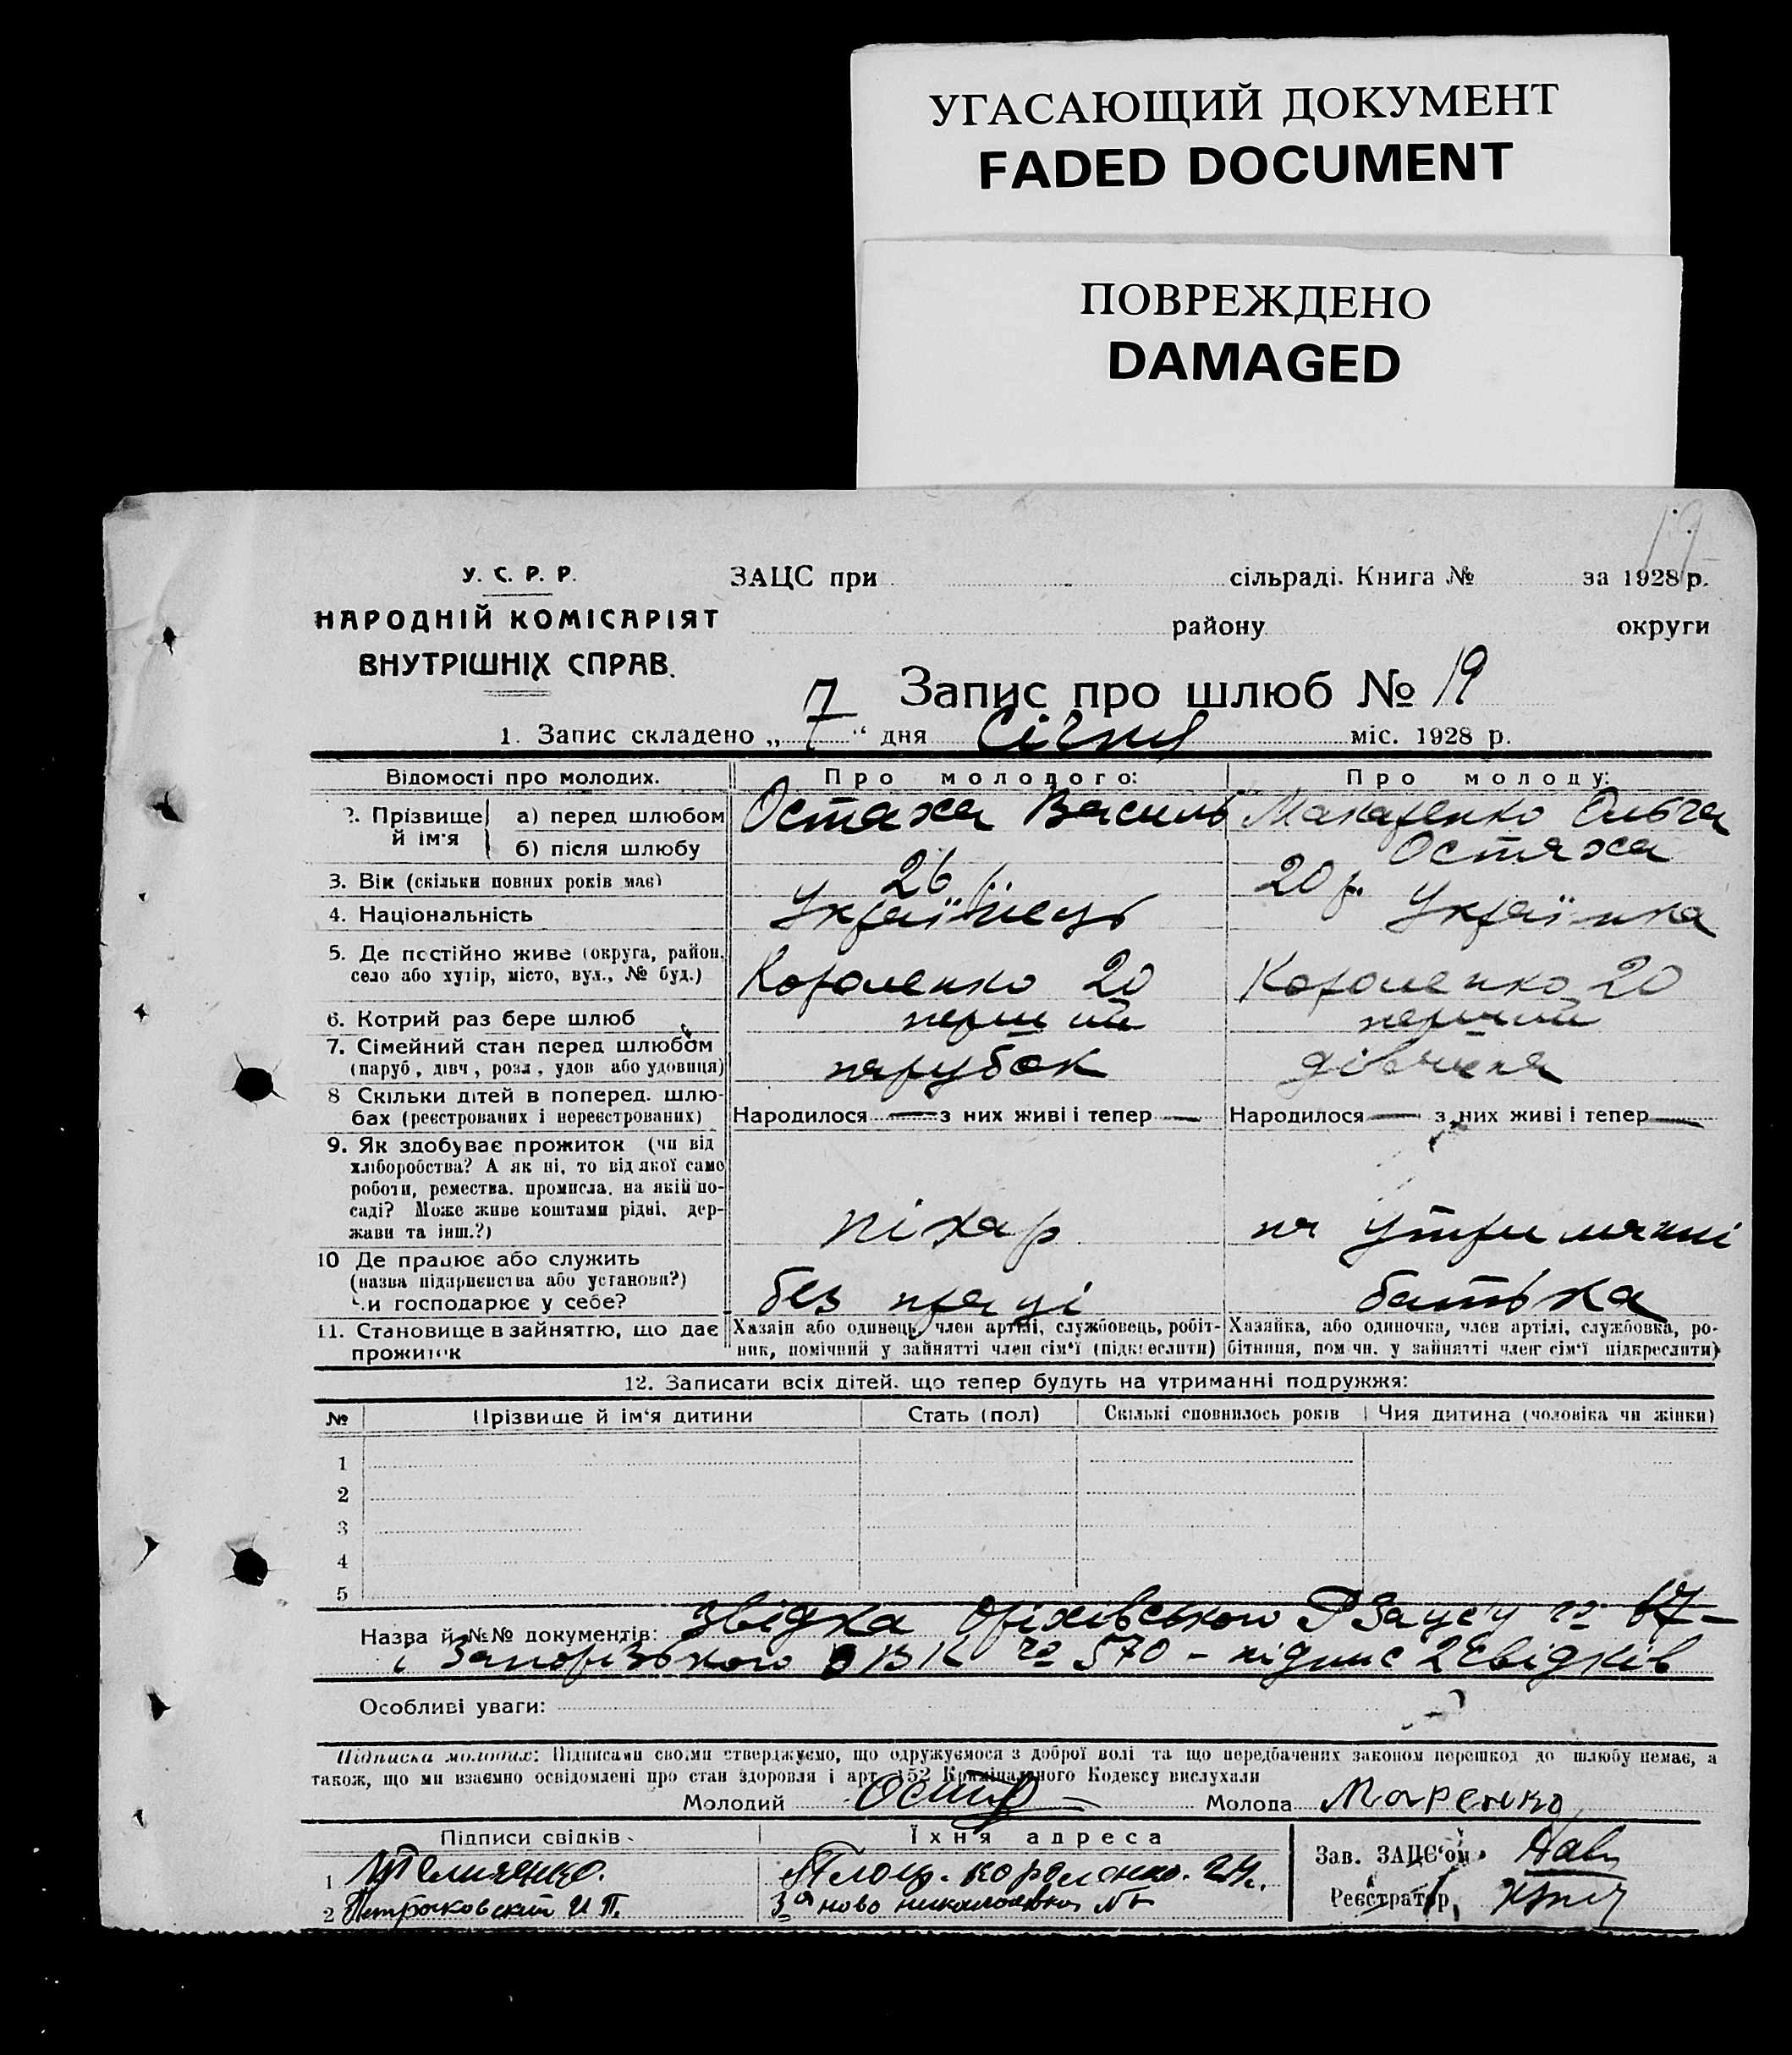 УГАСАЮЩИЙ ДОКУМЕНТ
FADED DOCUMENT
ПОВРЕЖДЕНО
DAMAGED
У. С. Р. Р.
НАРОДНІЙ КОМІСАРІЯТ
ВНУТРІШНІХ СПРАВ.
ЗАЦС при сільраді. Книга № за 1928 р.
району округи
Запис про шлюб № 19
1. Запис складено „7“ дня Січня міс. 1928 р.
Відомості про молодих. Про молодого: Про молоду:
2. Прізвище й ім'я а) перед шлюбом Остаха Василь Макаренко Ольга
б) після шлюбу Остаха
3. Вік (скільки повних років має) 26 р. 20 р.
4. Національність Українець Українка
5. Де постійно живе (округа, район, село або хутір, місто, вул., № буд.) Короленко 20 Короленко 20
6. Котрий раз бере шлюб перший перший
7. Сімейний стан перед шлюбом (паруб., дівч., розл., удов. або удовиця) парубок дівчина
8 Скільки дітей в поперед. шлюбах (реєстрованих і нереєстрованих) Народилося — з них живі і тепер — Народилося — з них живі і тепер —
9. Як здобуває прожиток (чи від хліборобства? А як ні, то від якої само роботи, ремества, промисла, на якій посаді? Може живе коштами рідні, держави та інш.?) пікар на утриманні
10 Де працює або служить (назва підприємства або установи?) Чи господарює у себе? без праці батька
11. Становище в зайняттю, що дає прожиток Хазяїн або одинець, член артілі, службовець, робітник, помічний у зайнятті член сім'ї (підкреслити) Хазяйка, або одиночка, член артілі, службовка, робітниця, помічн. у зайнятті член сім'ї підкреслити)
12. Записати всіх дітей, що тепер будуть на утриманні подружжя:
№ Прізвище й ім'я дитини Стать (пол) Скількі сповнилось років Чия дитина (чоловіка чи жінки)
1
2
3
4
5
Назва й №№ документів: Звідка Оріхівського РЗацсу № 17 –
і Запорізького ОВК № 570 – підпис 2 Свідків
Особливі уваги:
Підписка молодих: Підписами своїми стверджуємо, що одружуємося з доброї волі та що передбачених законом перешкод до шлюбу немає, а
також, що ми взаємно освідомлені про стан здоровля і арт. 152 Кримінального Кодексу вислухали
Молодий Молода
Підписи свідків Їхня адреса Зав. ЗАЦС'ом
1 Площ. короленко. 24.
2 Петраковский И П. Реєстратор